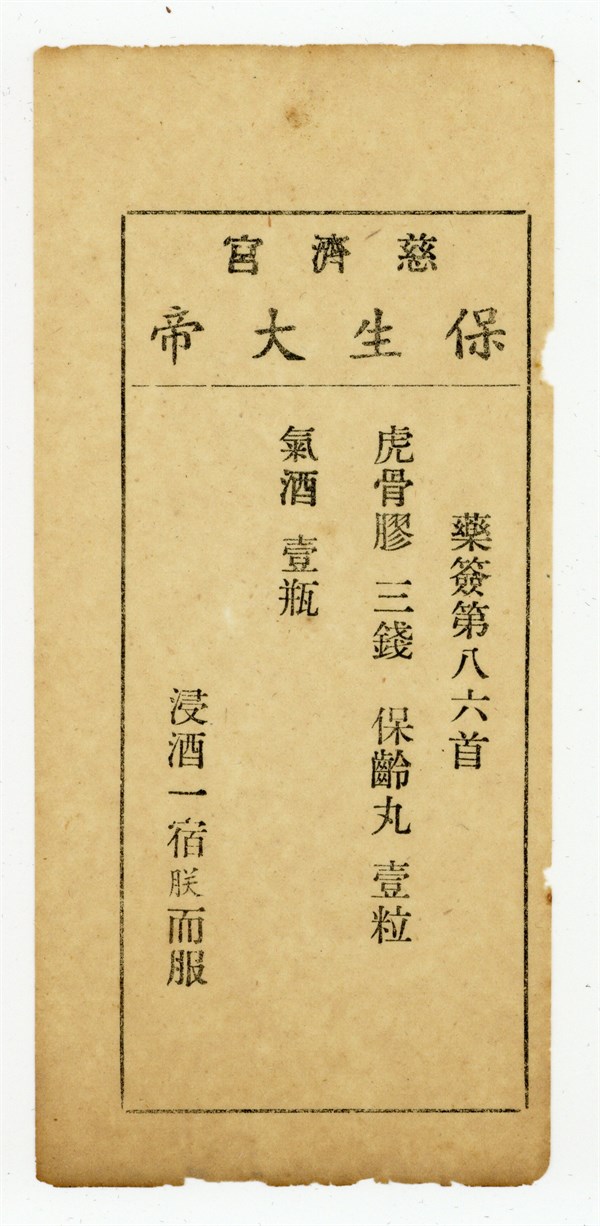 慈濟宮
保生大帝
藥簽第八六首
虎骨膠 三錢 保齡丸 壹粒
氣酒 壹瓶
浸酒一宿朕而服